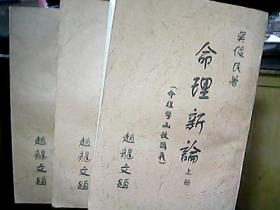 吳俊民著
命理新論 上册
(命理學函授講義)
趙龍文題
趙龍文題
趙龍文題